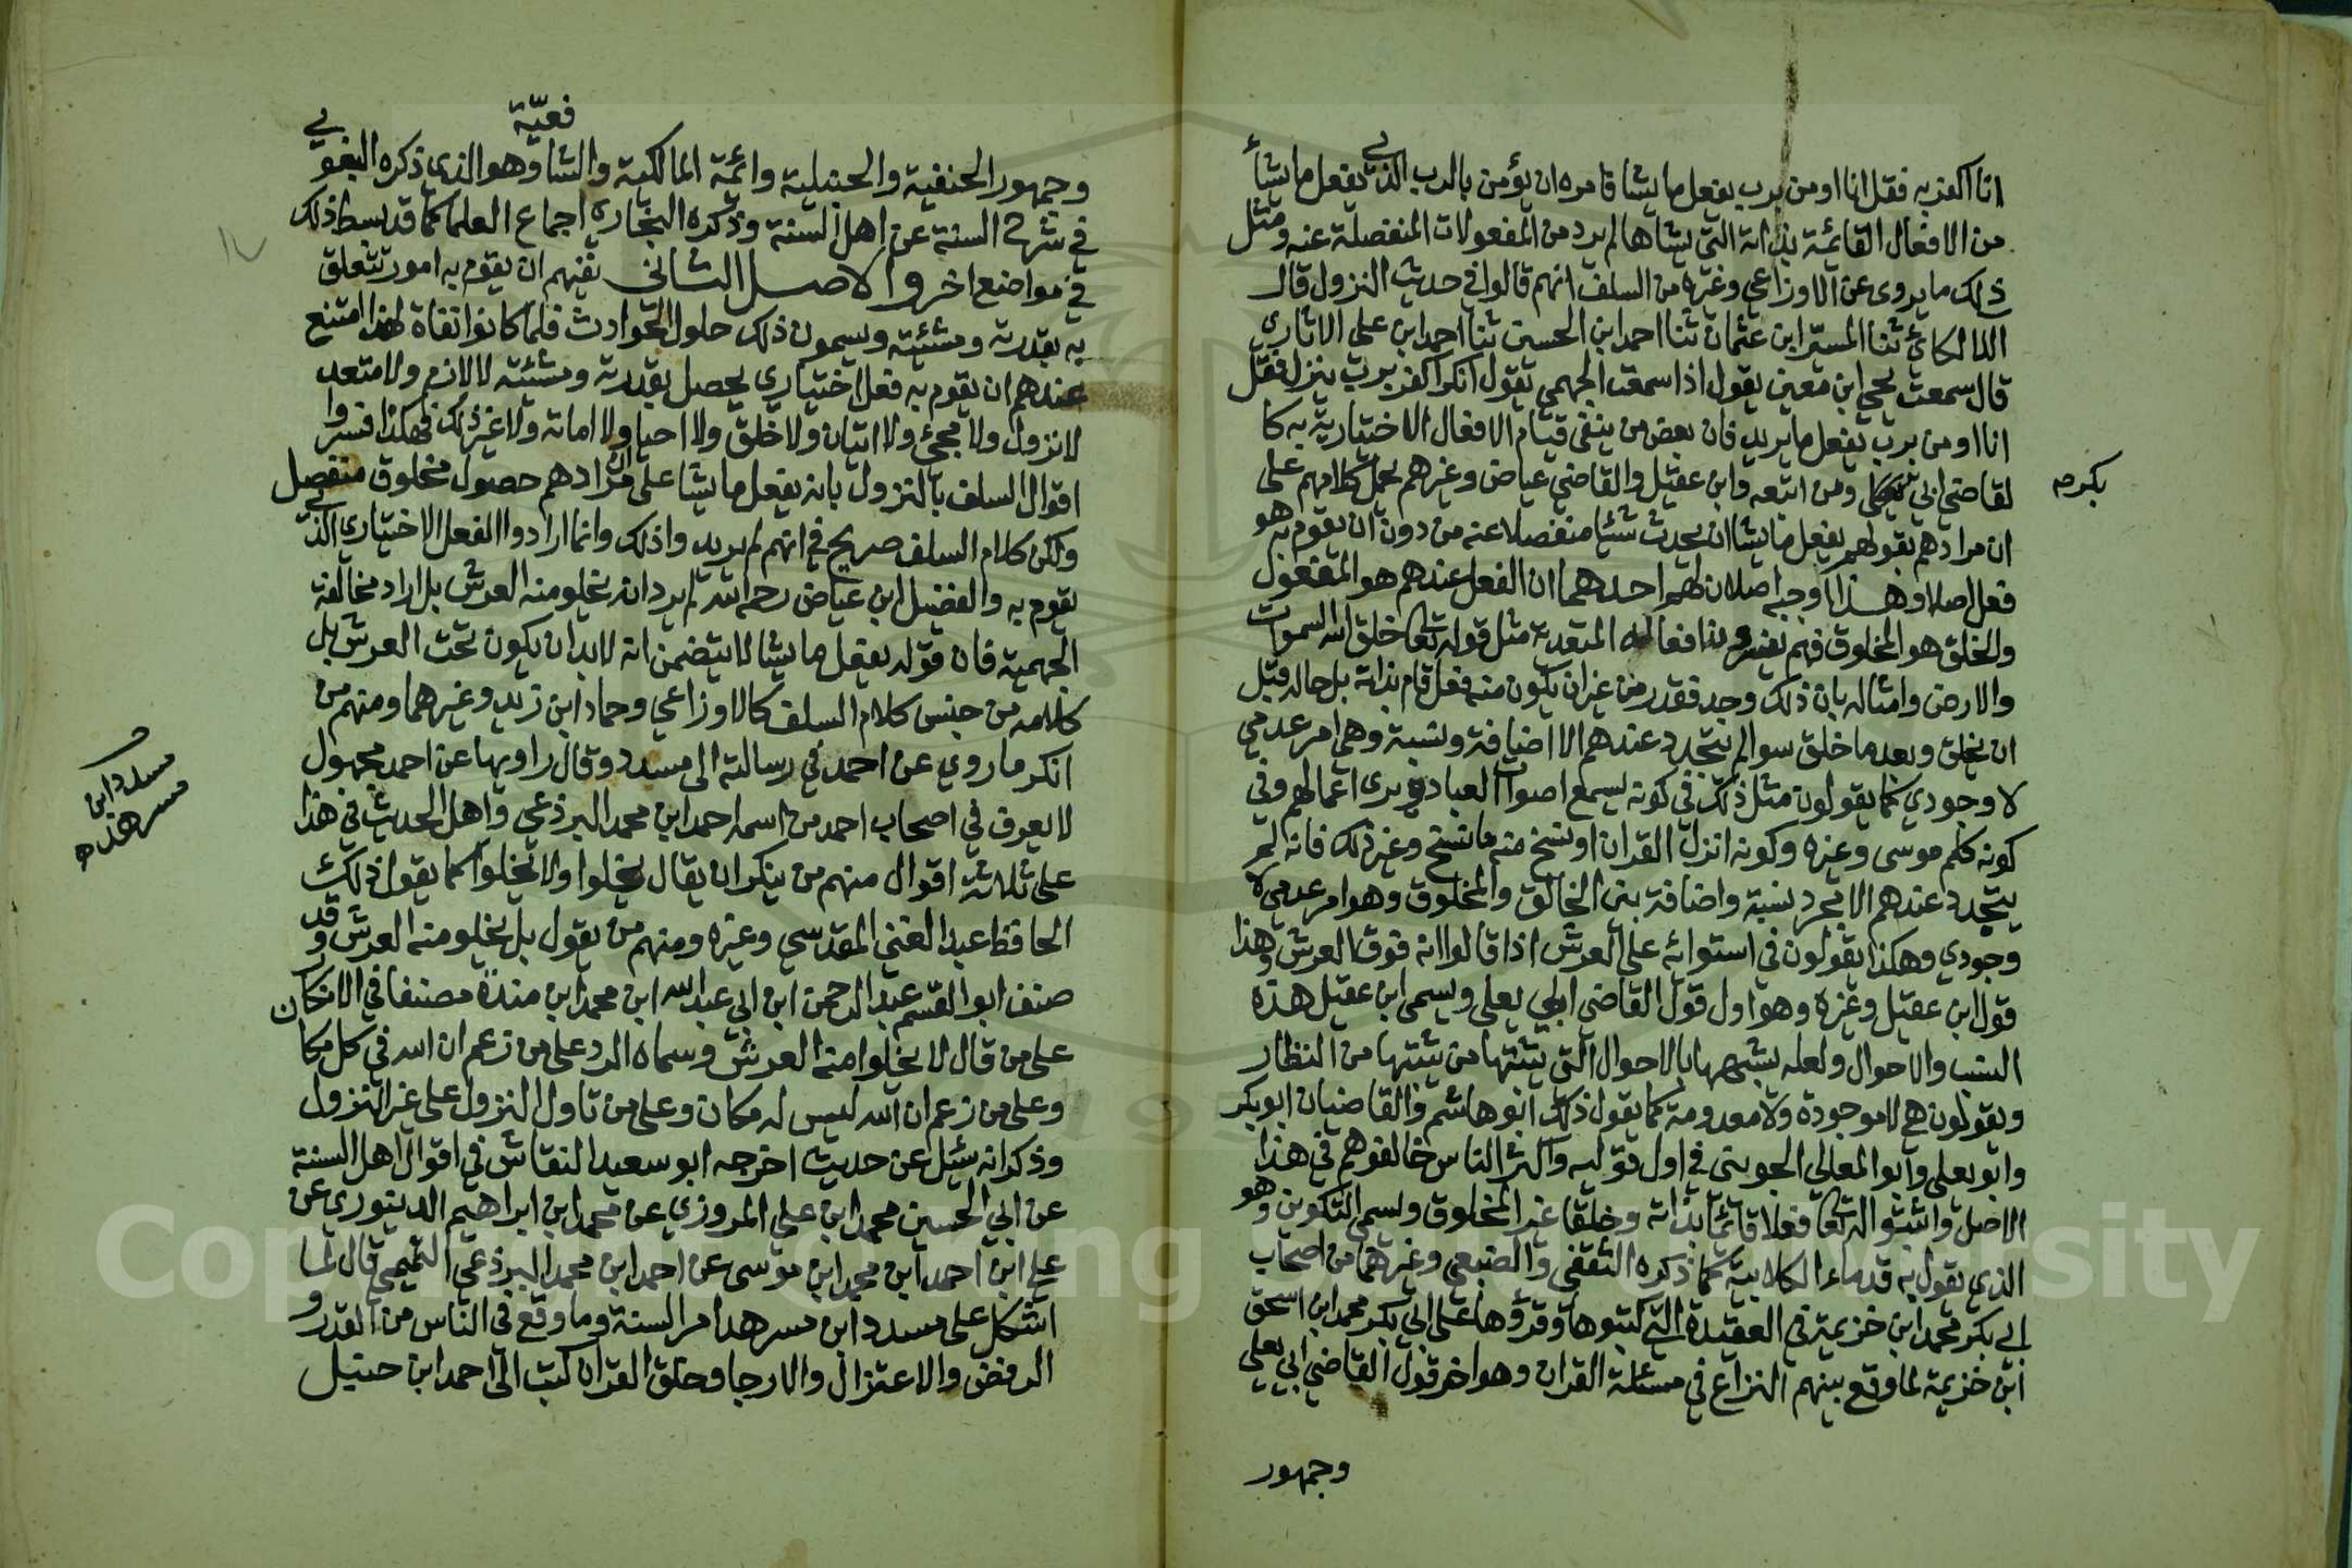 انا اكفر به فقل انا اومن برب يفعل ما يشا فامره ان يؤمن بالرب الذي يفعل ما يشأ
من الافعال القائمة بذاته التي يشاها لم يرد من المفعولات المنفصلة عنه ومثل
ذلك ما يروى عن الاوزاعي وغيره من السلف انهم قالوا في حديث النزول قال
اللالكائي ثنا المسير ابن عثمان ثنا احمد ابن الحسين ثنا احمد ابن علي الاباري
قال سمعت يحيى ابن معين يقول اذا سمعت الجهمي يقول انكرا كفر برب ينزل فقل
انا اومن برب يفعل ما يريد فان بعض من ينفي قيام الافعال الاختيارية به كا
لقاضي ابي بكر ومن اتبعه وابن عقيل والقاضي عياض وغيرهم يحمل كلامهم على
بكر صح
ان مرادهم بقولهم يفعل ما يشا ان يحدث شئيا منفصلا عنه من دون ان يقوم به هو
فعل اصلا وهذا اوجبه اصلان لهم احدهما ان الفعل عندهم هو المفعول
والخلق هو المخلوق فهم يفسرون افعاله المتعدية مثل قوله تعا خلق الله السموات
والارض وامثاله بان ذلك وجد فقدر من غير ان يكون منه فعل قام بذاته بل حاله قبل
ان يخلق وبعد ما خلق سوا لم يتجدد عندهم الا اضافة ونسبة وهي امر عدمي
لا وجودي كما يقولون مثل ذلك في كونه يسمع اصوات العباد ويرى اعمالهم وفي
كونه كلم موسى وغيره وكونه انزل القران او نسخ منه ما نسخ وغير ذلك فانه لم
يتجدد عندهم الا مجرد نسبة واضافة بين الخالق والمخلوق وهو امر عدمي لا
وجودي وهكذا يقولون في استوائه على العرش اذا قالوا انه فوق العرش وهذا
قول ابن عقيل وغيره وهو اول قول القاضي ابي يعلى ويسمى ابن عقيل هذه
النسب والاحوال ولعله يشبهها بالاحوال التي يثبتها من يثبتها من النظار
ويقولون هي لا موجودة ولا معدومة كما يقول ذلك ابو هاشم والقاضيان ابو بكر
وابو يعلى وابو المعالي الجويني في اول قوليه واكثر الناس خالفوهم في هذا
الاصل واثبتوا له تعا فعلا قائما بذاته وخلقا غير المخلوق ويسمى التكوين وهو
الذي يقول به قدماء الكلابية كما ذكره الثقفي والضبعي وغيرهما من اصحاب
ابي بكر محمد ابن خزيمة في العقيدة التي كتبوها وقرؤها على ابي بكر محمد ابن اسحق
ابن خزيمة لما وقع بينهم النزاع في مسئلة القران وهو اخر قول القاضي ابي يعلى
وجمهور
وجمهور الحنفية والحنبلية وائمة المالكية والشافعيّة وهو الذي ذكره البغوي
في شرح السنة عن اهل السنة وذكره البخاري اجماع العلما كما قد بسط ذلك
في مواضع اخر والاصل الثاني نفيهم ان يقوم به امور تتعلق
به بقدرته ومشئيته ويسمون ذلك حلول الحوادث فلما كانوا نفاة لهذا امتنع
عندهم ان يقوم به فعل اختياري يحصل بقدرته ومشئيته لا لازم ولا متعد
لا نزول ولا مجئ ولا اتيان ولا خلق ولا احيا ولا اماتة ولا غير ذلك فهكذا فسروا
اقوال السلف بالنزول بانه يفعل ما يشا على ان مرادهم حصول مخلوق منفصل
ولكن كلام السلف صريح في انهم لم يريدوا ذلك وانما ارادوا الفعل الاختياري الذي
يقوم به والفضيل ابن عياض رحمه الله لم يرد انه يخلو منه العرش بل اراد مخالفة
الجهمية فان قوله يفعل ما يشا لا يتضمن انه لابد ان يكون تحت العرش بل
كلامه من جنس كلام السلف كالاوزاعي وحماد ابن زيد وغيرهما ومنهم من
انكر ما روي عن احمد في رسالته الى مسدد وقال راويها عن احمد مجهول
مسدد ابن
مسرهد صح
لا يعرف في اصحاب احمد من اسمه احمد ابن محمد البرذعي واهل الحديث في هذا
على ثلاثة اقوال منهم من ينكر ان يقال يخلوا ولا يخلوا كما يقول ذلك
الحافظ عبد الغني المقدسي وغيره ومنهم من يقول بل يخلو منه العرش وقد
صنف ابو القسم عبد الرحمن ابن ابي عبد الله ابن محمد ابن مندة مصنفا في الانكار
على من قال لا يخلوا منه العرش وسماه الرد على من زعم ان الله في كل مكا
وعلى من زعم ان الله ليس له مكان وعلى من تاول النزول على غير النزول
وذكر انه سئل عن حديث اخرجه ابو سعيد النقاش في اقوال اهل السنة
عن ابي الحسين محمد ابن علي المروزي عن محمد ابن ابراهيم الدينوري عن
علي ابن احمد ابن محمد ابن موسى عن احمد ابن محمد البرذعي التميمي قال لما
اشكل على مسدد ابن مسرهد امر السنة وما وقع في الناس من القدر و
الرفض والاعتزال والارجا وخلق القران كتب الى احمد ابن حنبل